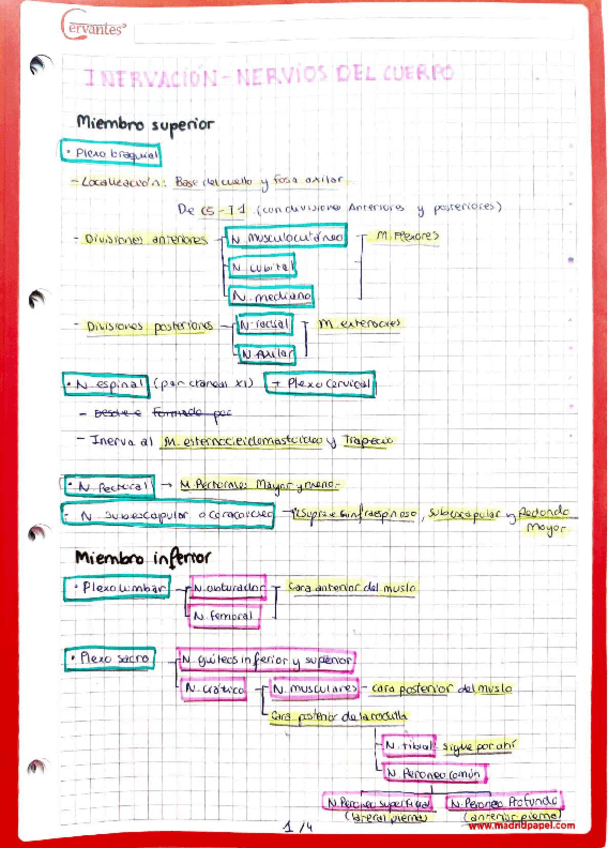 Cervantes
INERVACIÓN - NERVIOS DEL CUERPO
Miembro superior
· Plexo braquial
- Localización: Base del cuello y fosa axilar
De C5 - T1 (con divisiones Anteriores y posteriores)
- Divisiones anteriores N. musculocutáneo M. Flexores
N. cubital
N. mediano
- Divisiones posteriores N. radial M. extensores
N. Axilar
· N. espinal (par craneal XI) + Plexo Cervical
- Desde e formado por
- Inerva al M. esternocleidomastoideo y Trapecio
· N. Pectoral → M. Pectorales Mayor y menor
· N. Subescapular o → Supra e infraespinoso, Subescapular y Redondo
Mayor
Miembro inferior
· Plexo lumbar N. obturador Cara anterior del muslo
N. femoral
· Plexo sacro N. glúteos inferior y superior
N. ciático N. musculares - cara posterior del muslo
Cara posterior de la rodilla
N. tibial sigue por ahí
N. Peroneo común
N. Peroneo superficial N. Peroneo Profundo
(lateral pierna) (anterior pierna)
1/4
www.madridpapel.com